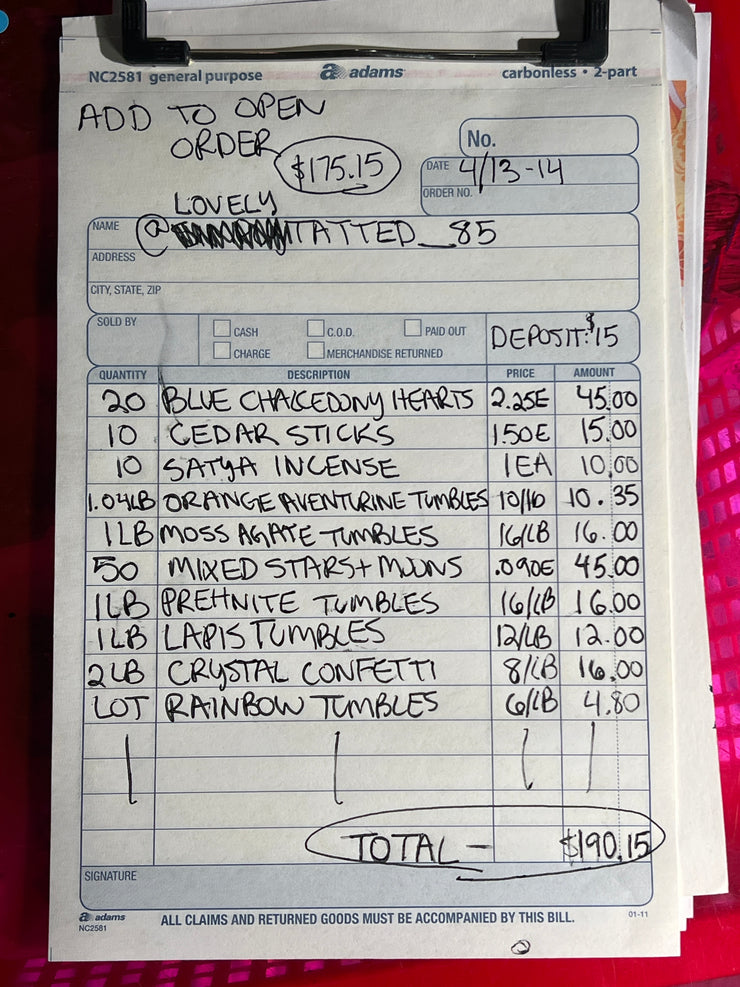 NC2581 general purpose adams carbonless • 2-part
ADD TO OPEN
ORDER
$175.15
No.
DATE 4/13-14
ORDER NO.
LOVELY
NAME @ TATTED_85
ADDRESS
CITY, STATE, ZIP
SOLD BY
CASH C.O.D. PAID OUT
CHARGE MERCHANDISE RETURNED
DEPOSIT: $15
QUANTITY DESCRIPTION PRICE AMOUNT
20 BLUE CHALCEDONY HEARTS 2.25E 45.00
10 CEDAR STICKS 1.50E 15.00
10 SATYA INCENSE 1EA 10.00
1.04LB ORANGE AVENTURINE TUMBLES 10/lb 10.35
1LB MOSS AGATE TUMBLES 16/LB 16.00
50 MIXED STARS + MOONS .090E 45.00
1LB PREHNITE TUMBLES 16/LB 16.00
1LB LAPIS TUMBLES 12/LB 12.00
2LB CRYSTAL CONFETTI 8/LB 16.00
LOT RAINBOW TUMBLES 6/LB 4.80
TOTAL - $190.15
SIGNATURE
adams
NC2581
ALL CLAIMS AND RETURNED GOODS MUST BE ACCOMPANIED BY THIS BILL.
01-11